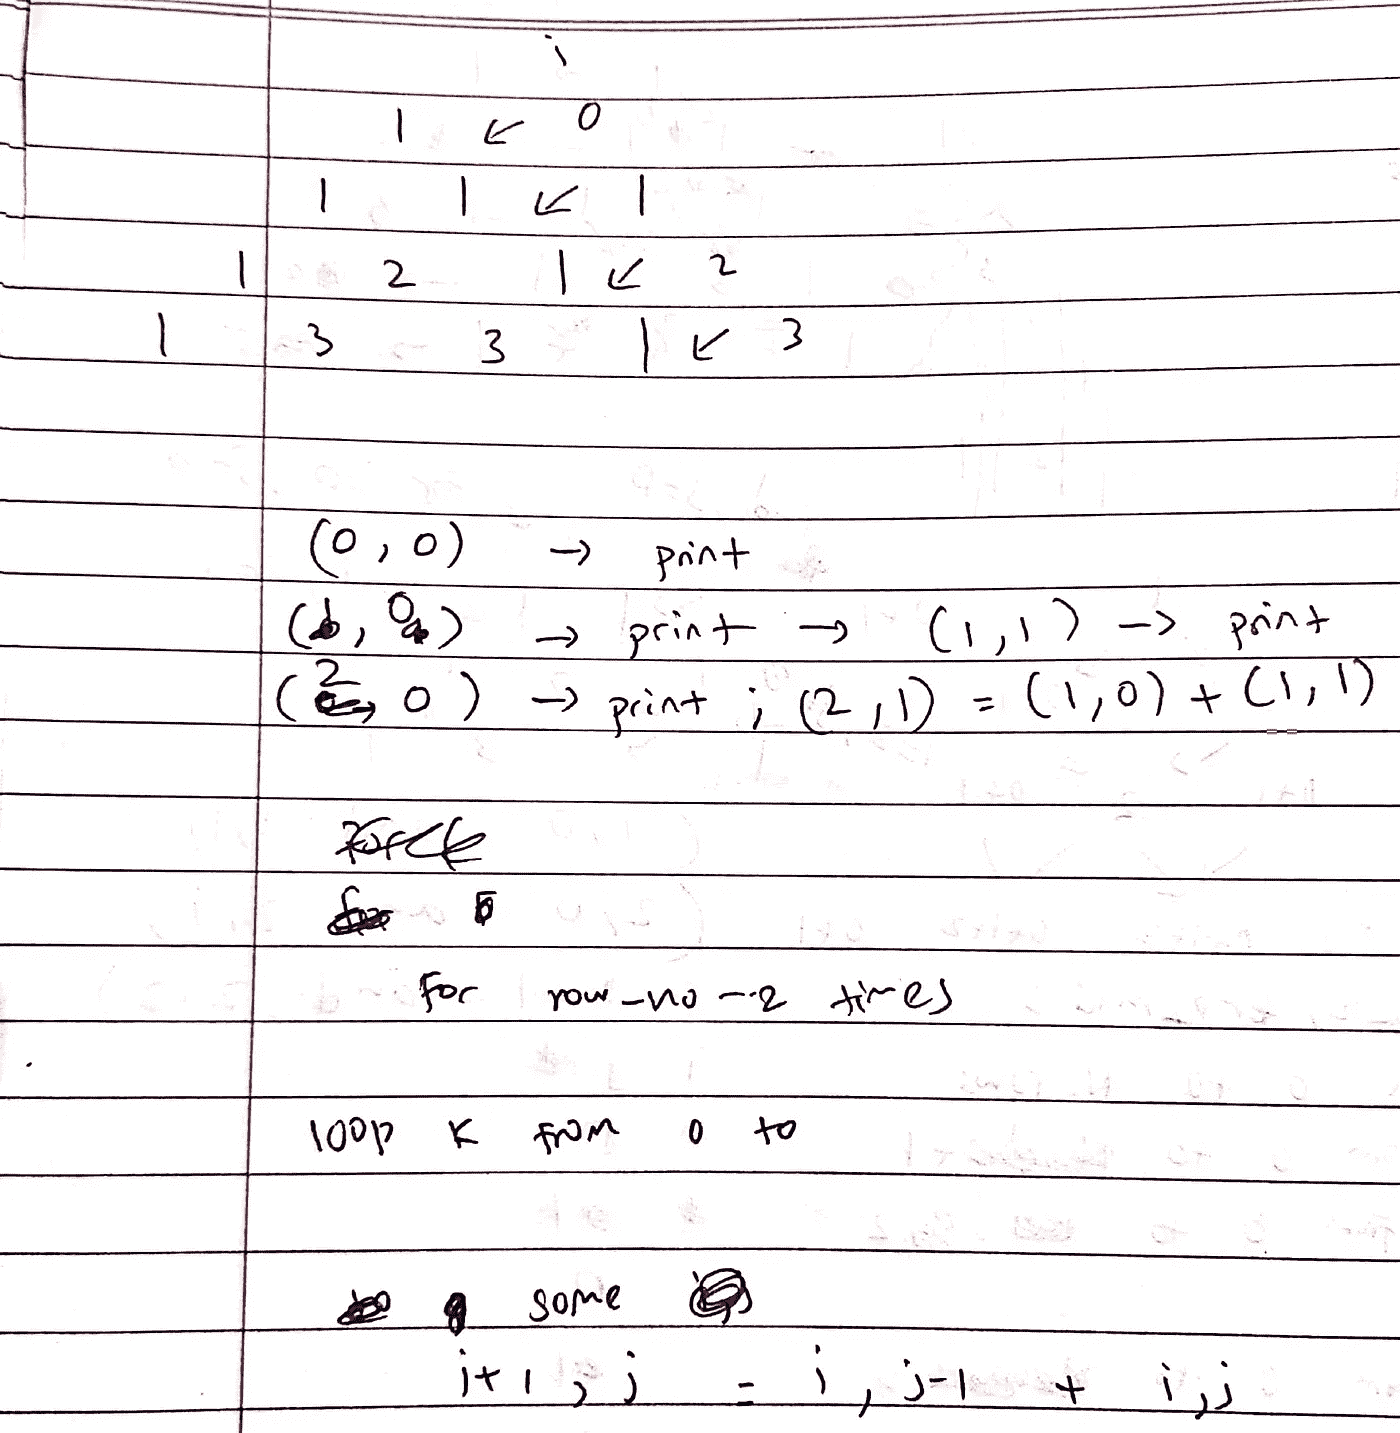 i
1 ↙ 0
1 1 ↙ 1
1 2 1 ↙ 2
1 3 3 1 ↙ 3
(0, 0) → print
( , 0 ) → print → (1,1) → print
(2, 0) → print ; (2,1) = (1,0) + (1,1)
For row-no-2 times
loop K from 0 to
some
i+1, j = i, j-1 + i,j